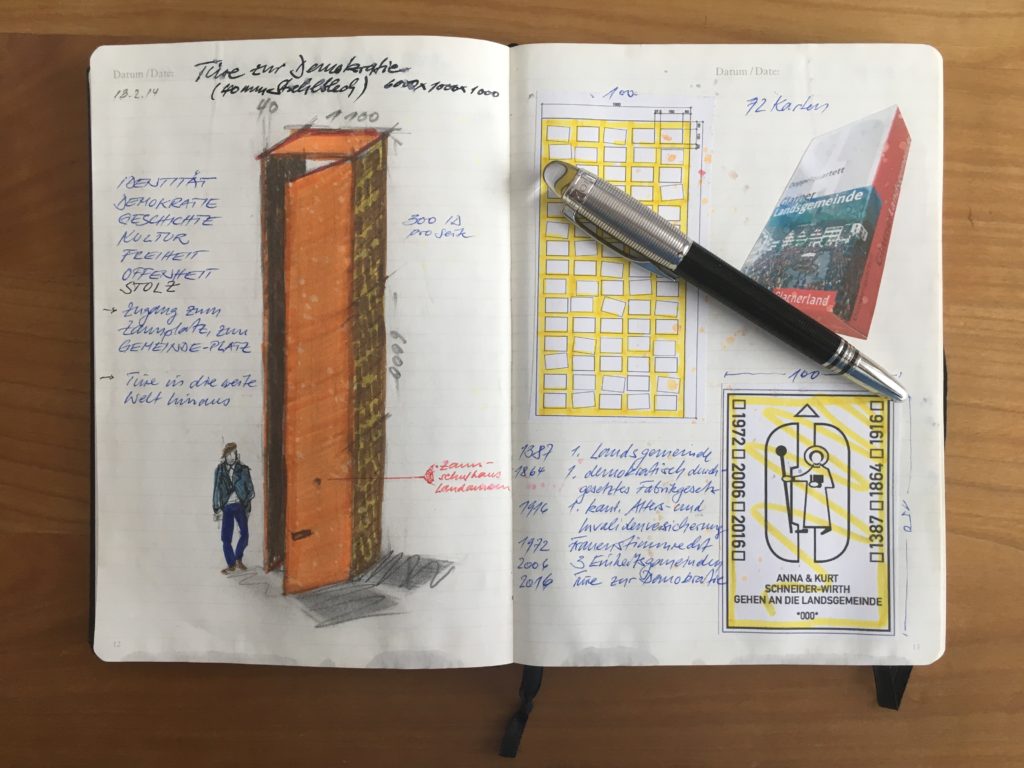 Datum/Date:
13.2.14
Türe zur Demokratie
(40 mm Stahlblech) 6000x1000x1000
40
1100
IDENTITÄT
DEMOKRATIE
GESCHICHTE
KULTUR
FREIHEIT
OFFENHEIT
STOLZ
→ Zugang zum
Zaunplatz, zum
GEMEINDE-PLATZ
→ Türe in die weite
Welt hinaus
pro Seite
6000
Zaun-
schulhaus
Landammann
12
Datum/Date:
100
1000
72 Karten
Doppelquartett
Glarner
Landsgemeinde
Glarnerland
1387 1. Landsgemeinde
1864 1. demokratisch durch-
gesetztes Fabrikgesetz
1916 1. kant. Alters- und
Invalidenversicherung
1972 Frauenstimmrecht
2006 3 Einheitsgemeinden
2016 Türe zur Demokratie
100
1972 2006 2016
1387 1864 1916
ANNA & KURT
SCHNEIDER-WIRTH
GEHEN AN DIE LANDSGEMEINDE
*000*
13